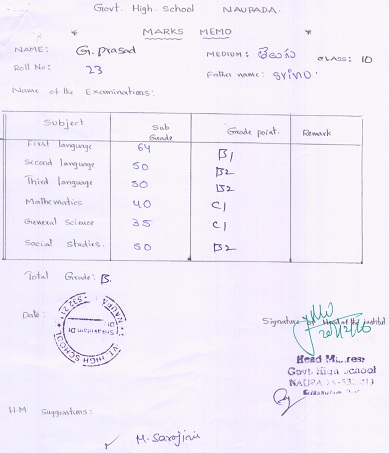 Govt. High. School NAUPADA.
* MARKS MEMO *
NAME: G. prasad MEDIUM: తెలుగు CLASS: 10
Roll No: 23 Father name: srinu.
Name of the Examinations:
Subject Sub Grade Grade point. Remark
First language 64 B1
Second language 50 B2
Third language 50 B2
Mathematics 40 C1
General Science 35 C1
Social studies. 50 B2
Total Grade: B.
Date:
Signature of Head of the institut
Head
Govt. High School
H.M Suggestions:
M. Sarojini